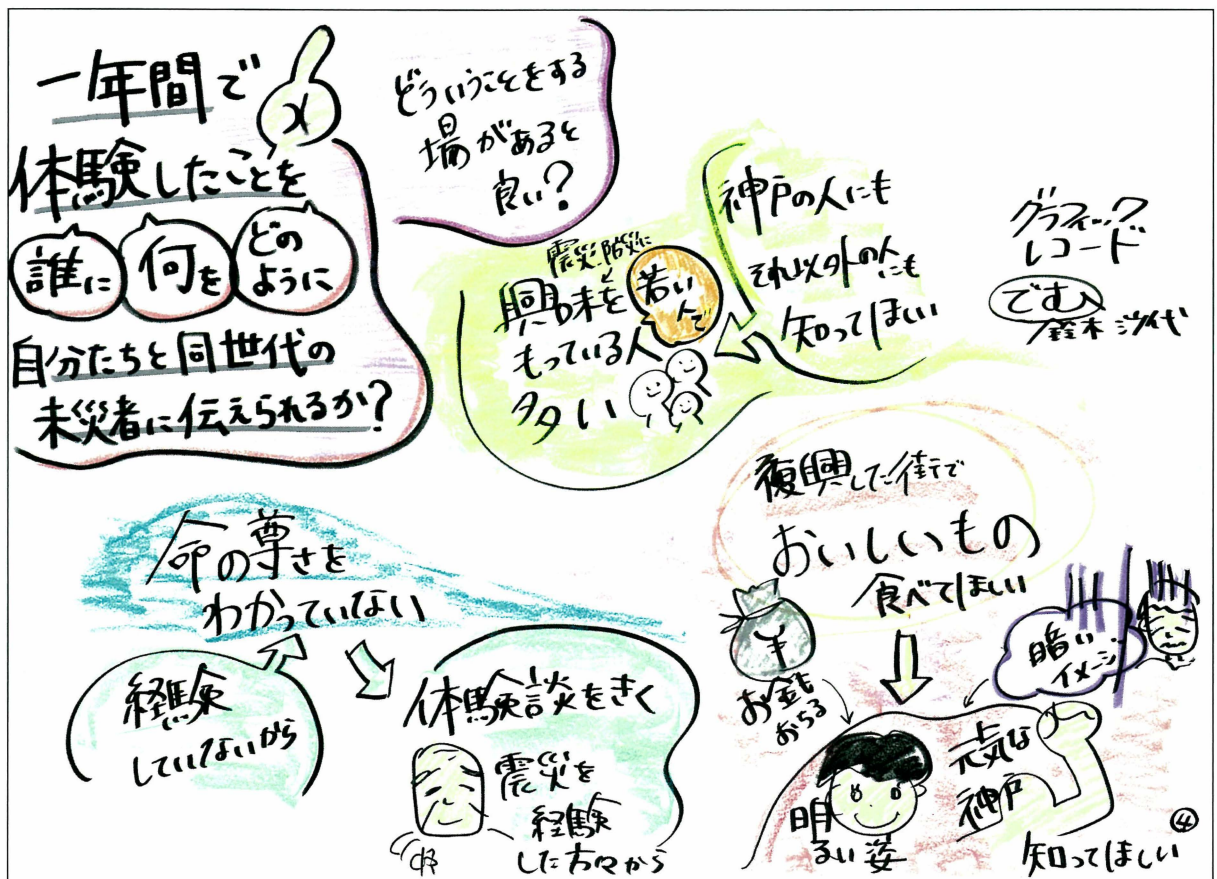 一年間で
体験したことを
誰に
何を
どの
ように
自分たちと同世代の
未災者に伝えられるか?
どういうことをする
場があると
良い?
神戸の人にも
それ以外の人にも
知ってほしい
震災、防災に
若い
人で
興味を
もっている人
多い
グラフィック
レコード
でむ
鈴木 沙代
命の尊さを
わかっていない
経験
していないから
体験談をきく
震災を
経験
した方々から
復興した街で
おいしいもの
食べてほしい
¥
お金も
おちる
暗い
イメージ
明
るい姿
元気な
神戸
知ってほしい
④